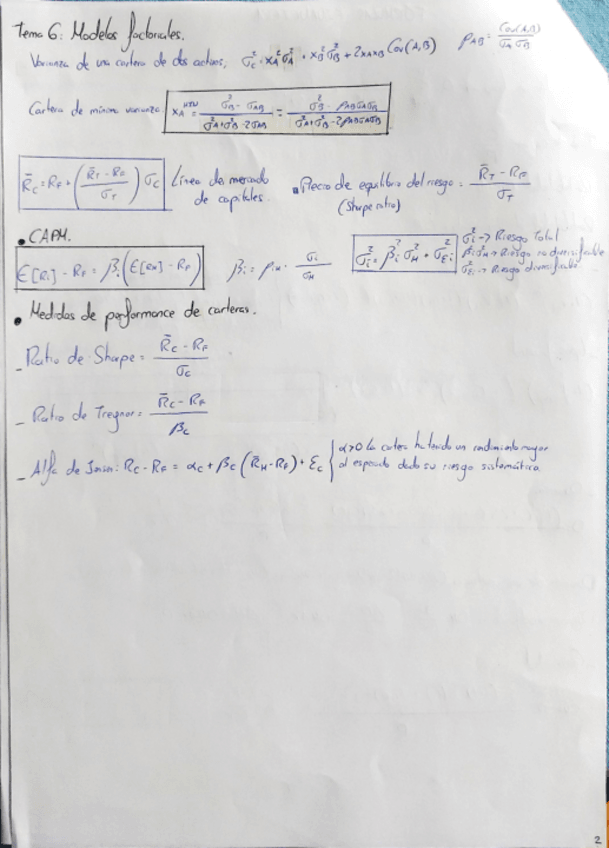 Tema 6: Modelos factoriales.
Varianza de una cartera de dos activos, σ_C² = x_A² σ_A² + x_B² σ_B² + 2x_A x_B Cov(A,B)   ρ_AB = Cov(A,B) / σ_A σ_B
Cartera de mínima varianza: x_A^MVN = (σ_B² - σ_AB) / (σ_A² + σ_B² - 2σ_AB) = (σ_B² - ρ_AB σ_A σ_B) / (σ_A² + σ_B² - 2ρ_AB σ_A σ_B)
R̄_C = R_F + ((R̄_T - R_F) / σ_T) σ_C   Línea de mercado de capitales.
Precio de equilibrio del riesgo = (R̄_T - R_F) / σ_T
(Sharpe ratio)
• CAPM.
E[R_i] - R_F = β_i (E[R_M] - R_F)   β_i = ρ_iM · σ_i / σ_M   σ_i² = β_i² σ_M² + σ_Ei²
σ_i² → Riesgo Total
β_i² σ_M² → Riesgo no diversificable
σ_Ei² → Riesgo diversificable
• Medidas de performance de carteras.
- Ratio de Sharpe = (R̄_C - R_F) / σ_C
- Ratio de Treynor = (R̄_C - R_F) / β_C
- Alfa de Jensen: R_C - R_F = α_C + β_C (R̄_M - R_F) + ε_C { α>0 la cartera ha tenido un rendimiento mayor
al esperado dado su riesgo sistemático.
2